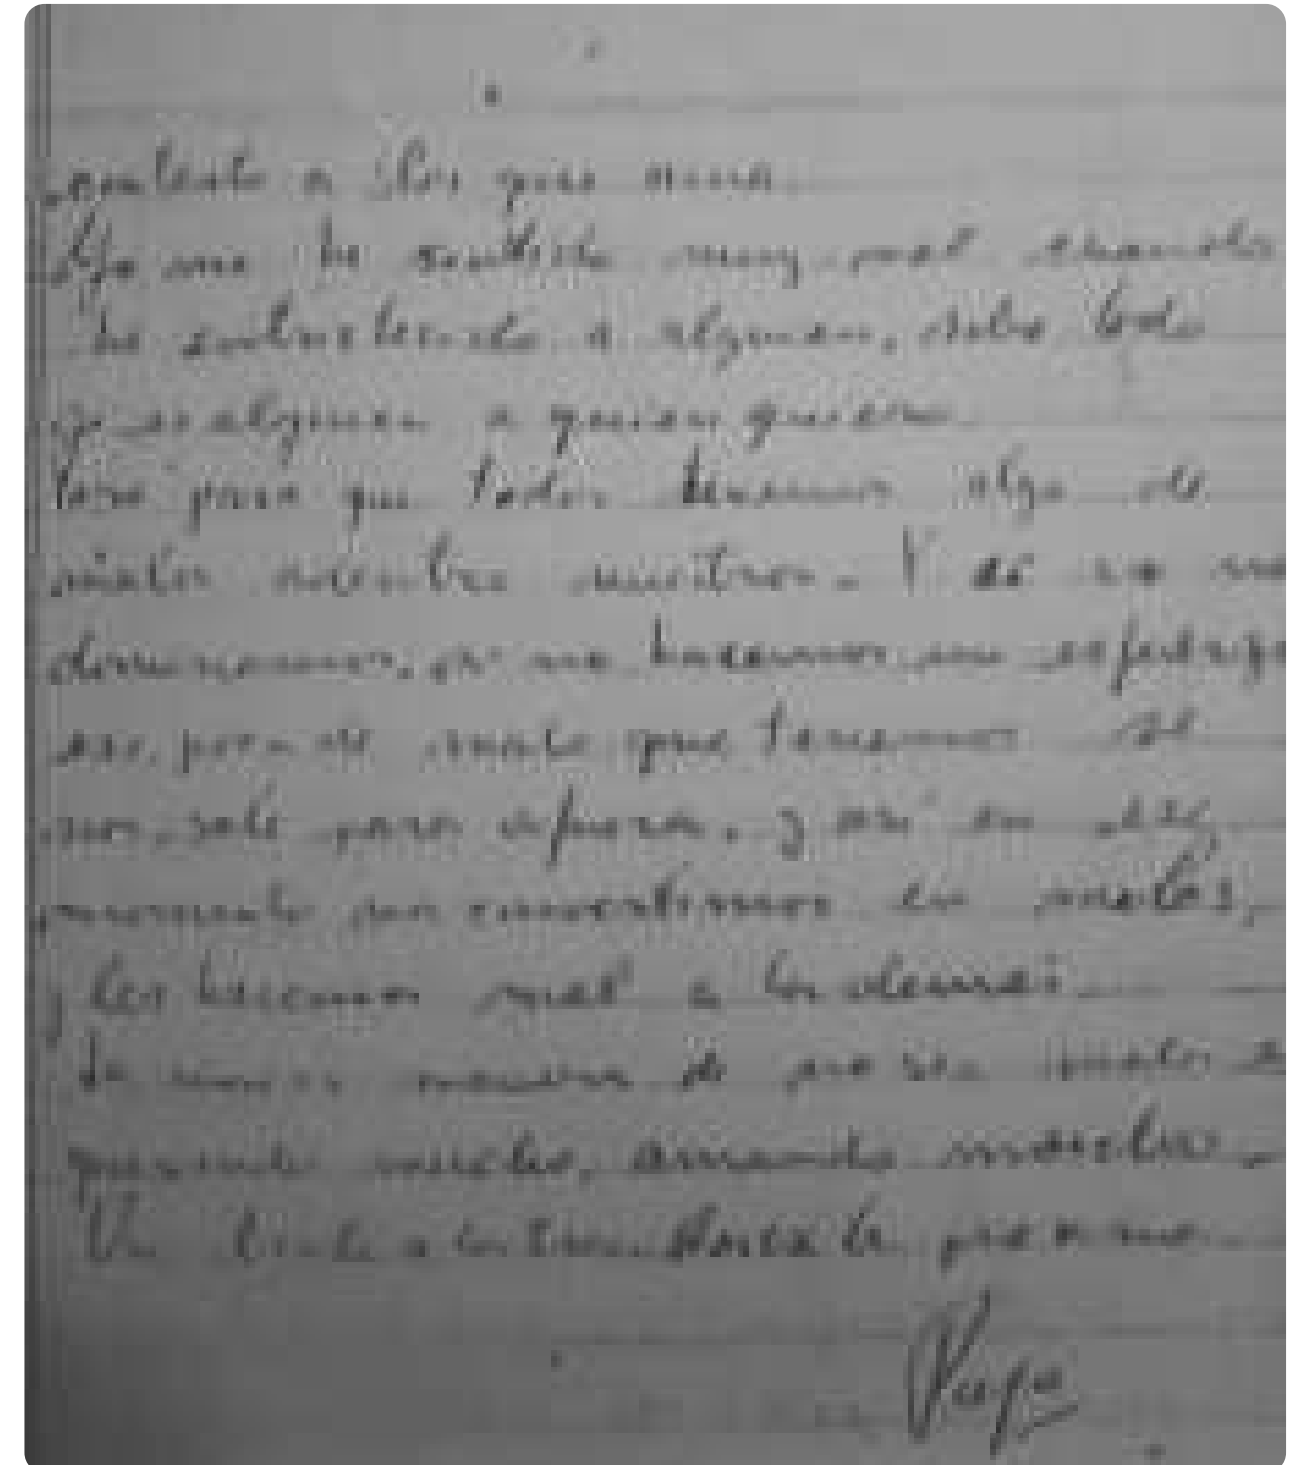 a los que ama.
Yo me he sentido muy mal cuando
he a alguien, sobre todo
si es alguien a quien quiero.
que todos tenemos algo de
malos adentro nuestro. Y si no
dominamos, si no hacemos un esfuerzo
ese poco de malo que tenemos se
nos sale para afuera, y así en ese
momento nos convertimos en malos,
y les hacemos mal a los demás.
La única manera de no ser malos
queriendo mucho, amando mucho.
Un a los tres. Hasta la próxima.
Papá